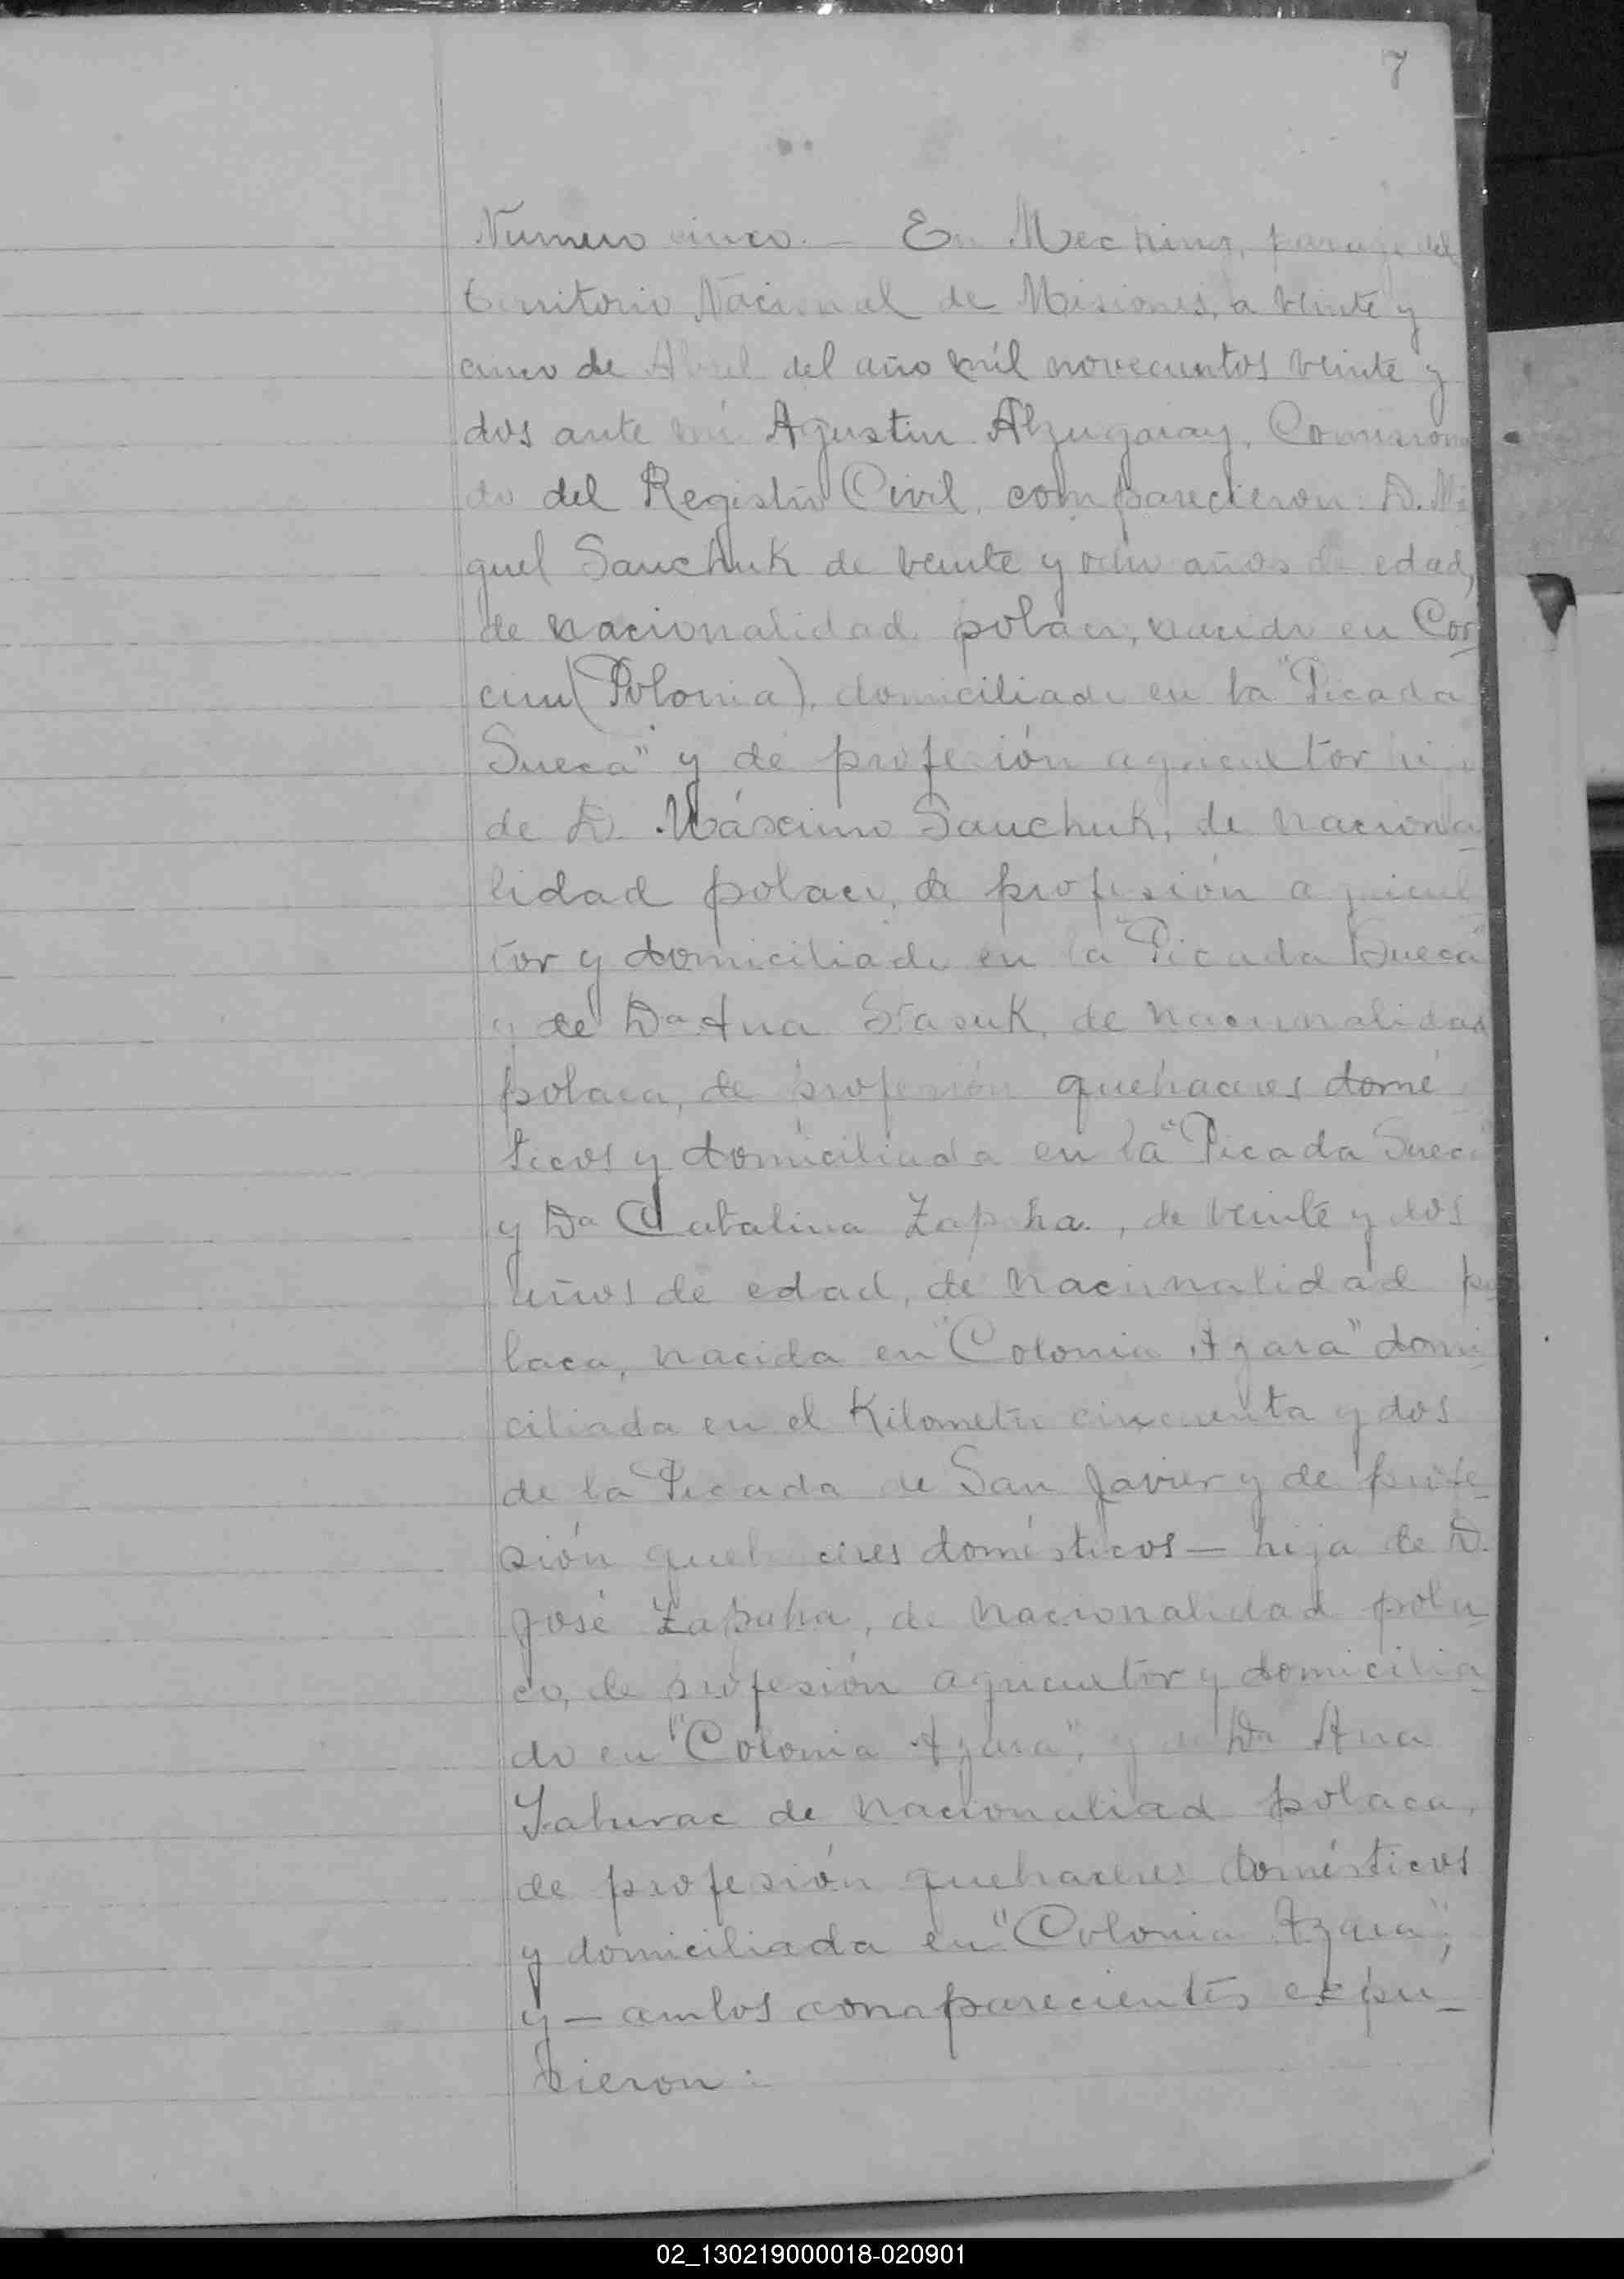 7
Numero cinco. — En Mecking, paraje del
territorio Nacional de Misiones, a veinte y
cinco de Abril del año mil novecientos veinte y
dos ante mi Agustin Alzugaray, Comisiona
do del Registro Civil, comparecieron: D. Mi
guel Sauchuk de veinte y ocho años de edad,
de nacionalidad polaca, nacido en Cor_
cin (Polonia), domiciliado en la "Picada
Sueca" y de profesión agricultor hijo
de D. Máximo Sauchuk, de naciona_
lidad polaco, de profesión agricul
tor y domiciliado en la "Picada Sueca"
y de Da Ana Stasuk, de nacionalidad
polaca, de profesión quehaceres domé
ticos y domiciliada en la "Picada Sueca"
y Da Catalina Zapaha, de veinte y dos
años de edad, de nacionalidad po
laca, nacida en "Colonia Azara" domi
ciliada en el Kilometro cincuenta y dos
de la Picada de San Javier y de profe_
sión quehaceres domésticos — hija de D.
José Zapaha, de nacionalidad pola_
co, de profesión agricultor y domicilia_
do en "Colonia Azara", y de Da Ana
de nacionaliad polaca,
de profesión quehaceres domésticos
y domiciliada en "Colonia Azara";
y — ambos comparecientes expu_
sieron:
02_130219000018-020901